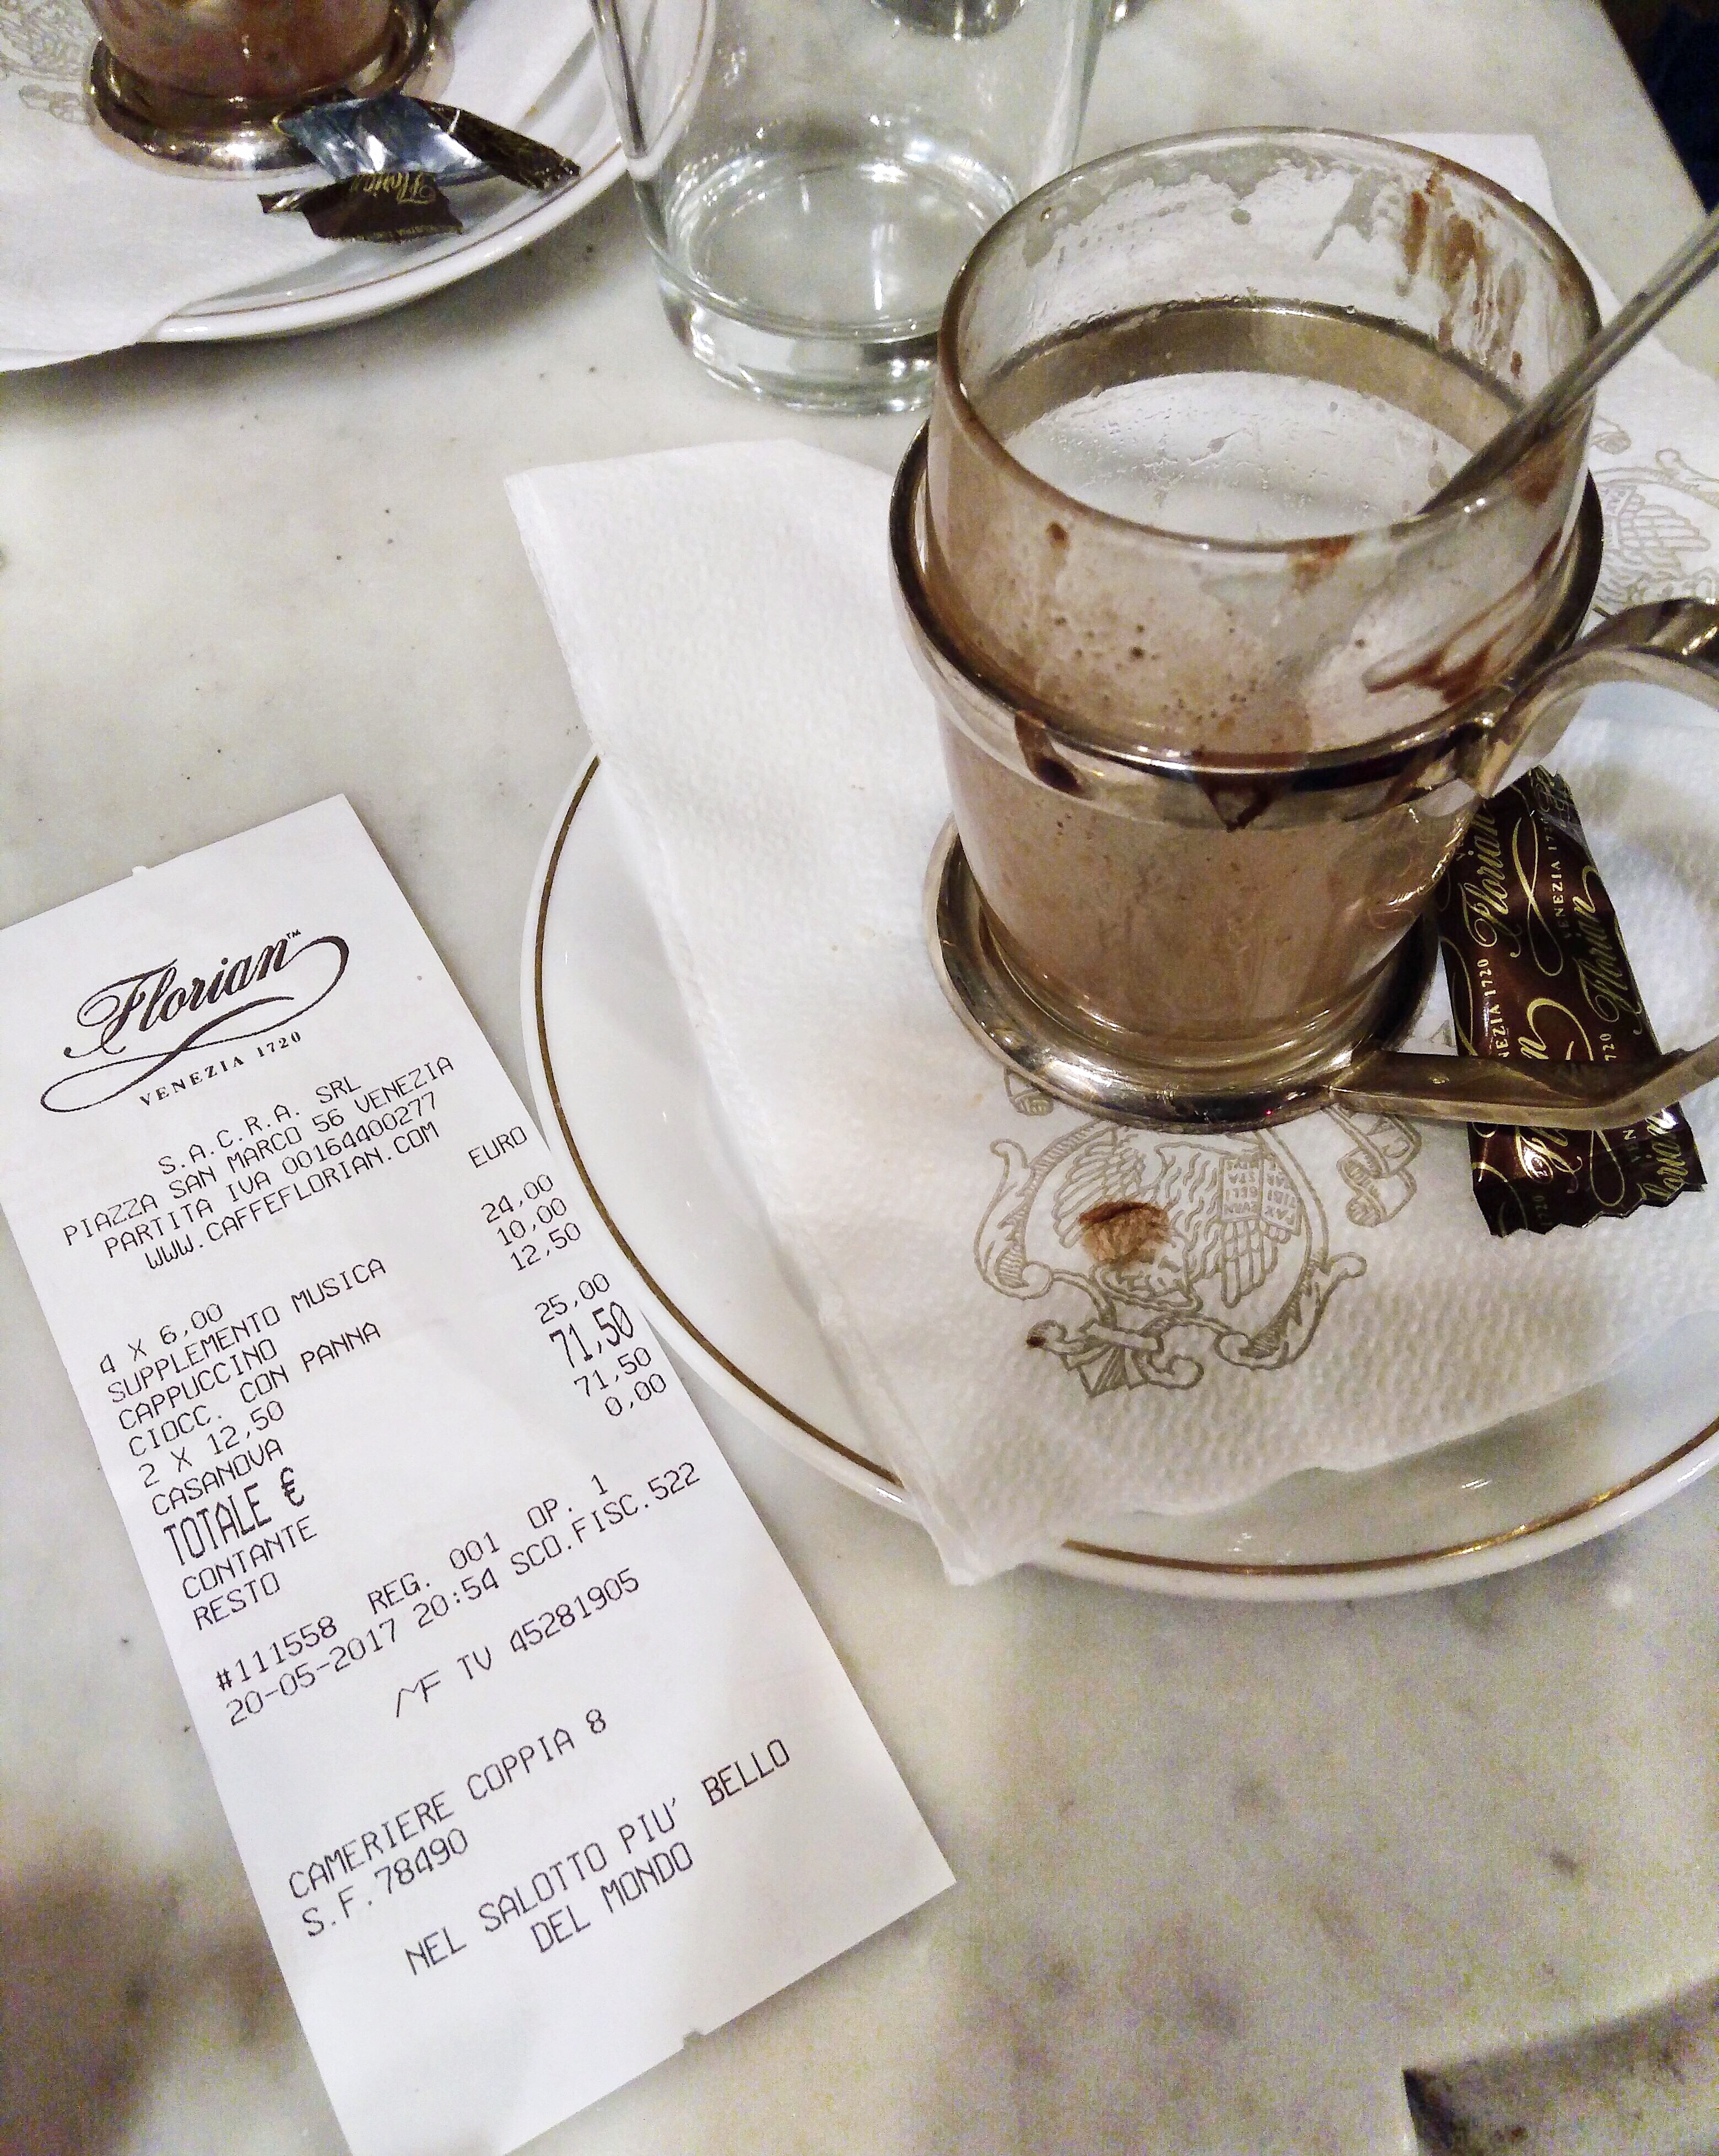 Florian™
VENEZIA 1720
S.A.C.R.A. SRL
PIAZZA SAN MARCO 56 VENEZIA
PARTITA IVA 00164400277
WWW.CAFFEFLORIAN.COM
EURO
4 X 6,00
SUPPLEMENTO MUSICA 24,00
CAPPUCCINO 10,00
CIOCC. CON PANNA 12,50
2 X 12,50
CASANOVA 25,00
TOTALE € 71,50
CONTANTE 71,50
RESTO 0,00
#111558 REG. 001 OP. 1
20-05-2017 20:54 SCO.FISC.522
MF TV 45281905
CAMERIERE COPPIA 8
S.F.78490
NEL SALOTTO PIU' BELLO
DEL MONDO
Florian
Florian
VENEZIA 1720
Florian